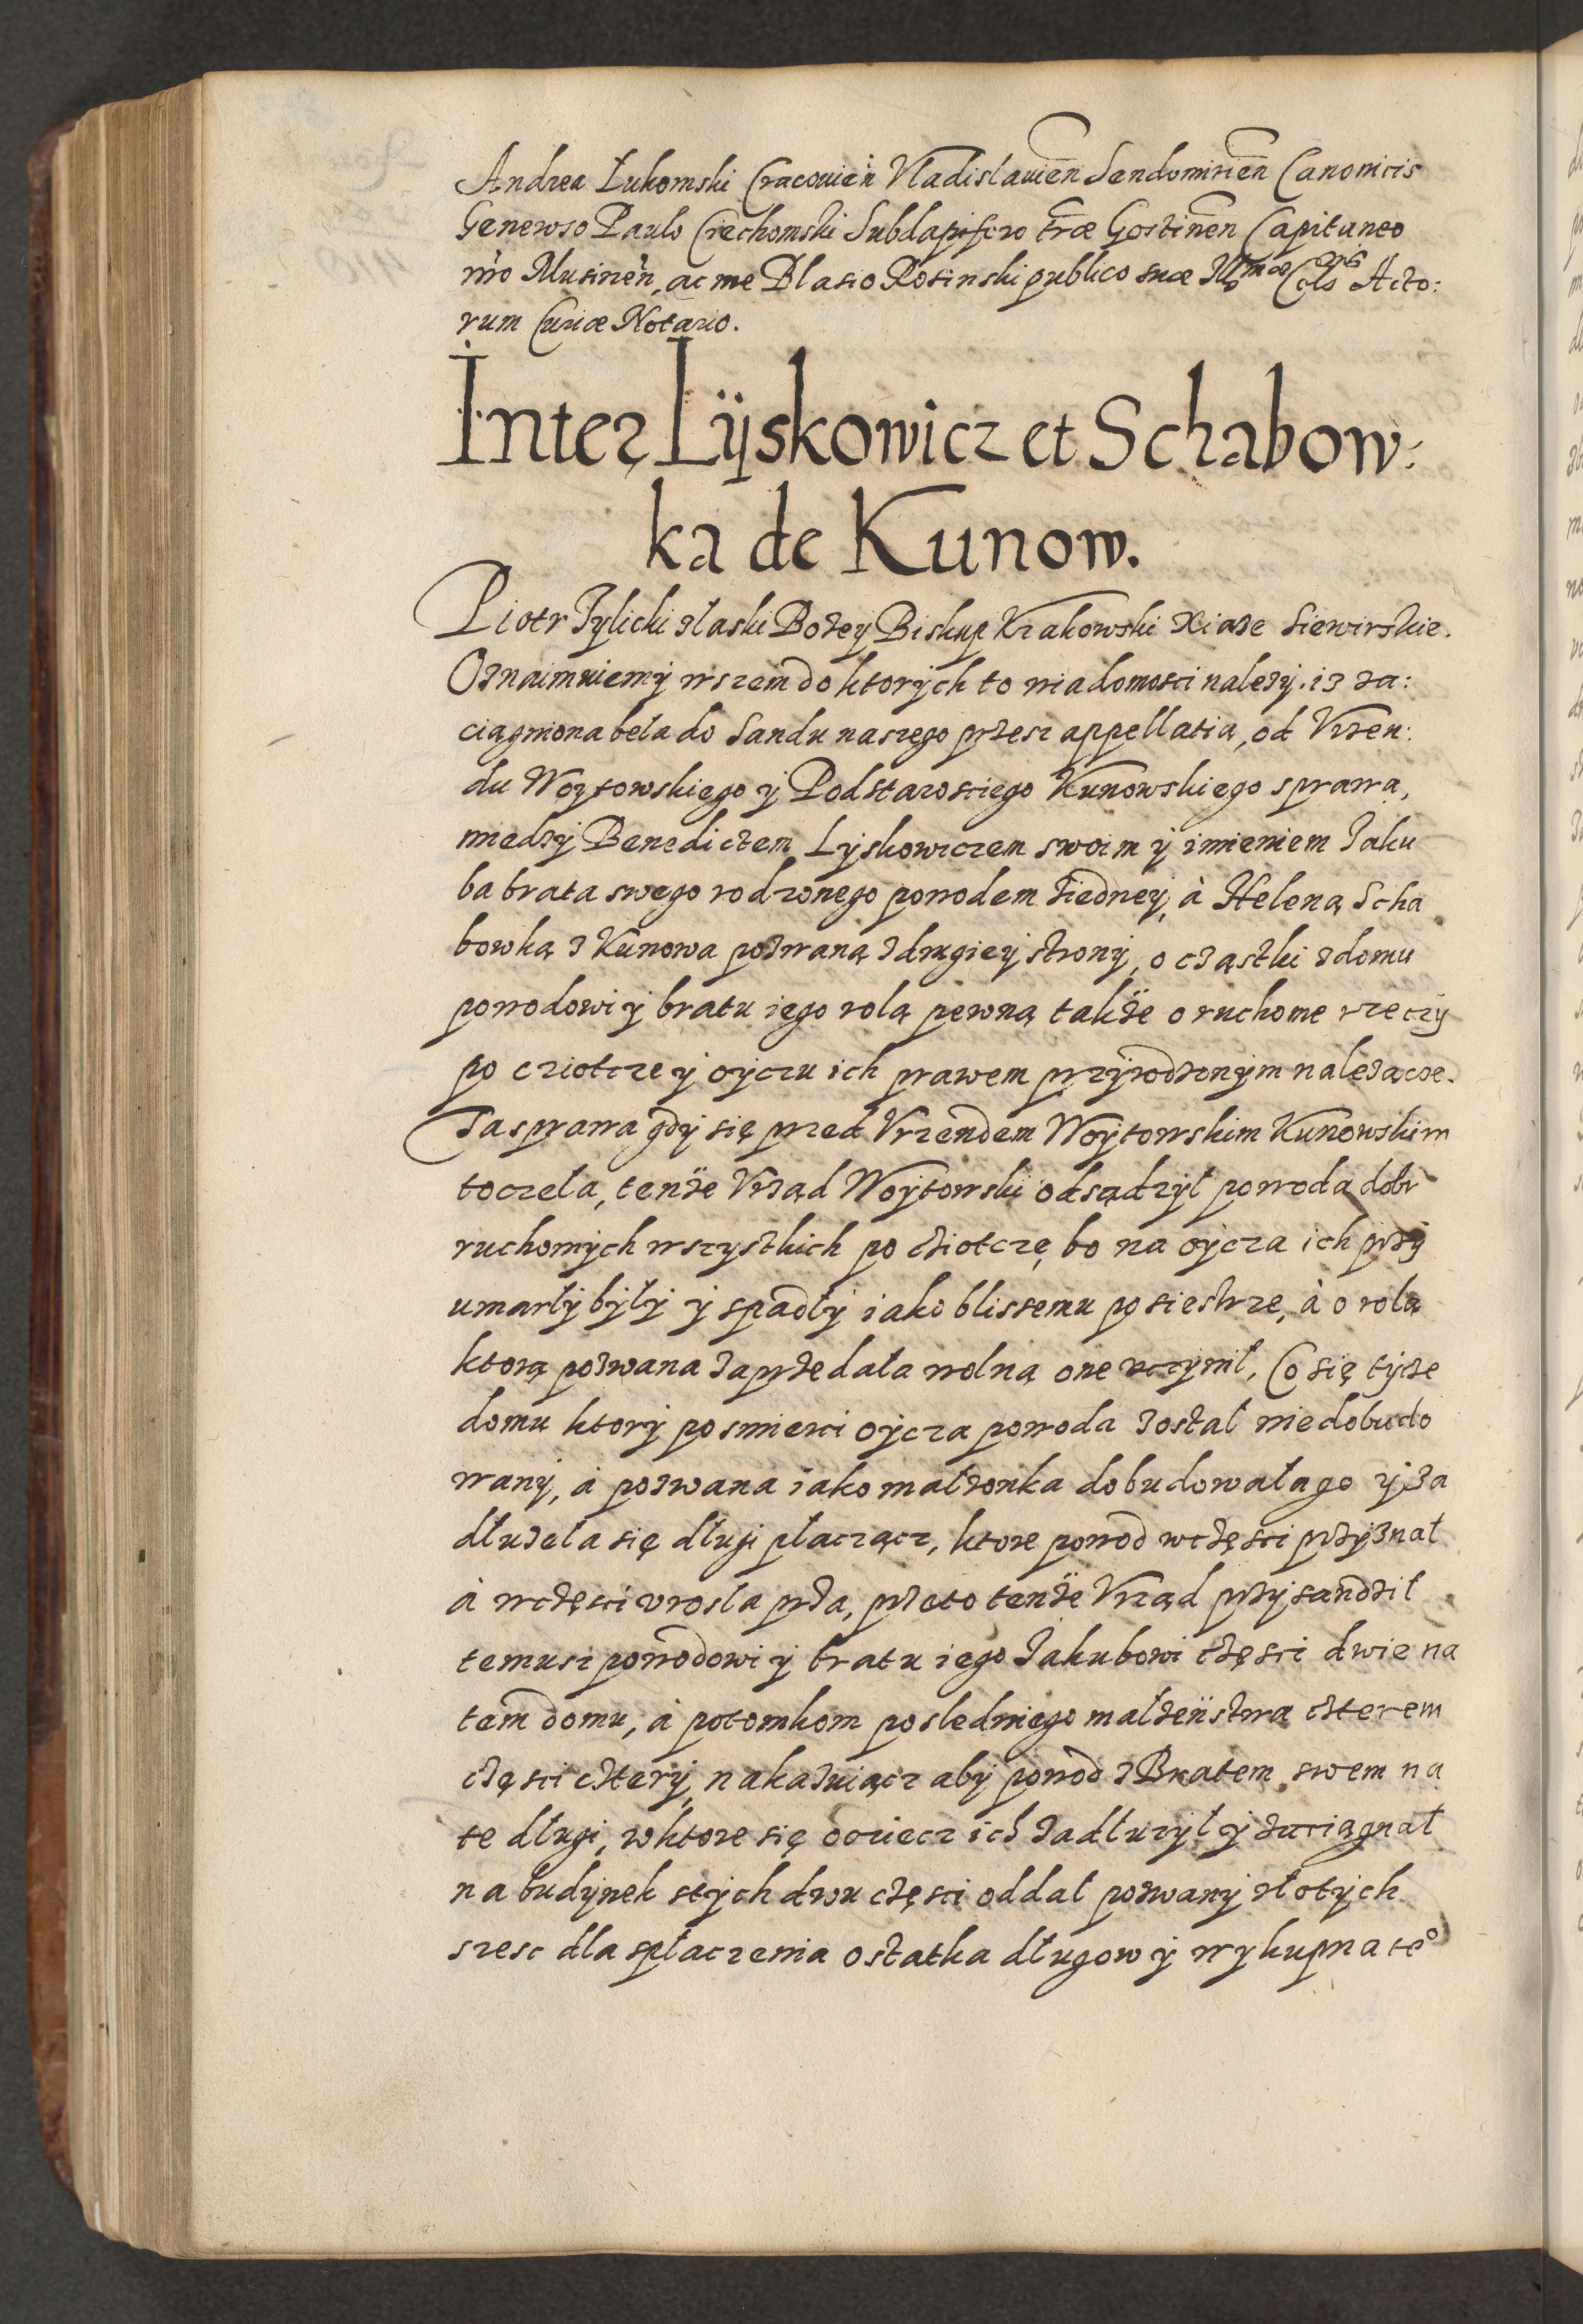 Andrea Łukomski Cracovien̄ Vladislavien̄ Sendomirien̄ Canonicis
Generoso Paulo Ciechomski Subdapifero tr̄æ Gostinen̄ Capitaneo
nr̄o Musinen̄, ac me Blasio Rosinski publico suæ Illmæ Celsnis Acto:
rum Curiæ Notario.
Inter Lÿskowicz et Schabow:
ka de Kunow.
Piotr Tylicki z łaski Bozey Biskup Krakowski Xiaze Siewirskie.
Oznaimuiemÿ wszem do ktorÿch to wiadomosci nalezÿ. iz za:
ciągniona beła do Sandu naszego przesz appellatia, od Vrzen:
du Woytowskiego ÿ Podstarosciego Kunowskiego sprawa,
miedzÿ Benedictem Lyskowiczem swoim ÿ imieniem Jaku
ba brata swego rodzonego powodem z iednej, à Heleną Scha
bowką z Kunowa pozwaną z drugiey stronÿ, o cząstki z domu
powodowi ÿ bratu iego rolą pewną takze o ruchome rzeczÿ
po cziotcze ÿ oÿczu ich prawem przÿrodzonÿm nalezącze.
Ta sprawa gdÿ się przed Vrzendem Woÿtowskim Kunowskim
toczeła, tenze Vrząd Woÿtowski odsądzył powoda dobr
ruchomÿch wszystkich po cziotczę, bo na oÿcza ich przÿ
umarłÿ bÿłÿ ÿ spadłÿ iako blissemu po siestrze, à o rolą
ktorą pozwana zaprzedała wolną one uczynił, Co się tÿcze
domu ktorÿ po smierci oÿcza powoda został niedobudo
wanÿ, à pozwana iako małzonka dobudowała go ÿ za
dłuzeła się długi płacząc, ktore powod w częsci przÿznał
à w częsci urosła prza, przeto tenze Vrząd przÿsandził
temusz powodowi ÿ bratu iego Jakubowi częsci dwie na
tem domu, à potomkom posledniego małzeństwa czterem
częsci czterÿ, nakazuiącz abÿ powod z Bratem swem na
te długi, w ktore się ocziecz ich zadłuzył ÿ zaciągnał
na budÿnek stÿch dwu częsci oddał pozwanÿ złotÿch
szesc dla spłaczenia ostatka długow ÿ wykupna te°